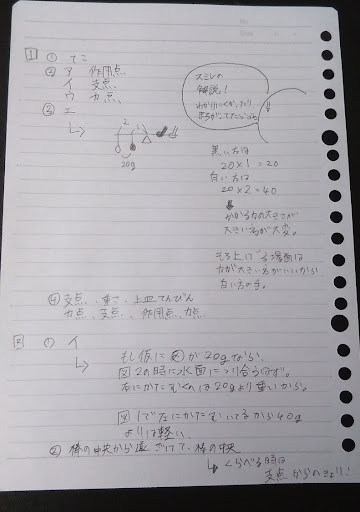 1 ① てこ
② ア 作用点
イ 支点
ウ 力点
③ エ
スミレの
解説!
2 1
20g
黒い方は
20×1=20
白い方は
20×2=40
かかる力の大きさが
大きい方が大変。
もち上げる場面は
力が大きい方がいいから
白い方の手。
④ 支点、重さ、上皿てんびん
力点、支点、作用点、力点
2 ① イ
もし仮に が20gなら、
図2の時に水面につり合うはず。
右にかたむくのは20gより重いから。
図1で左にかたむいてるから40g
よりは軽い
② 棒の中央から遠ざけて、棒の中央
くらべる時は
支点からのきょり!